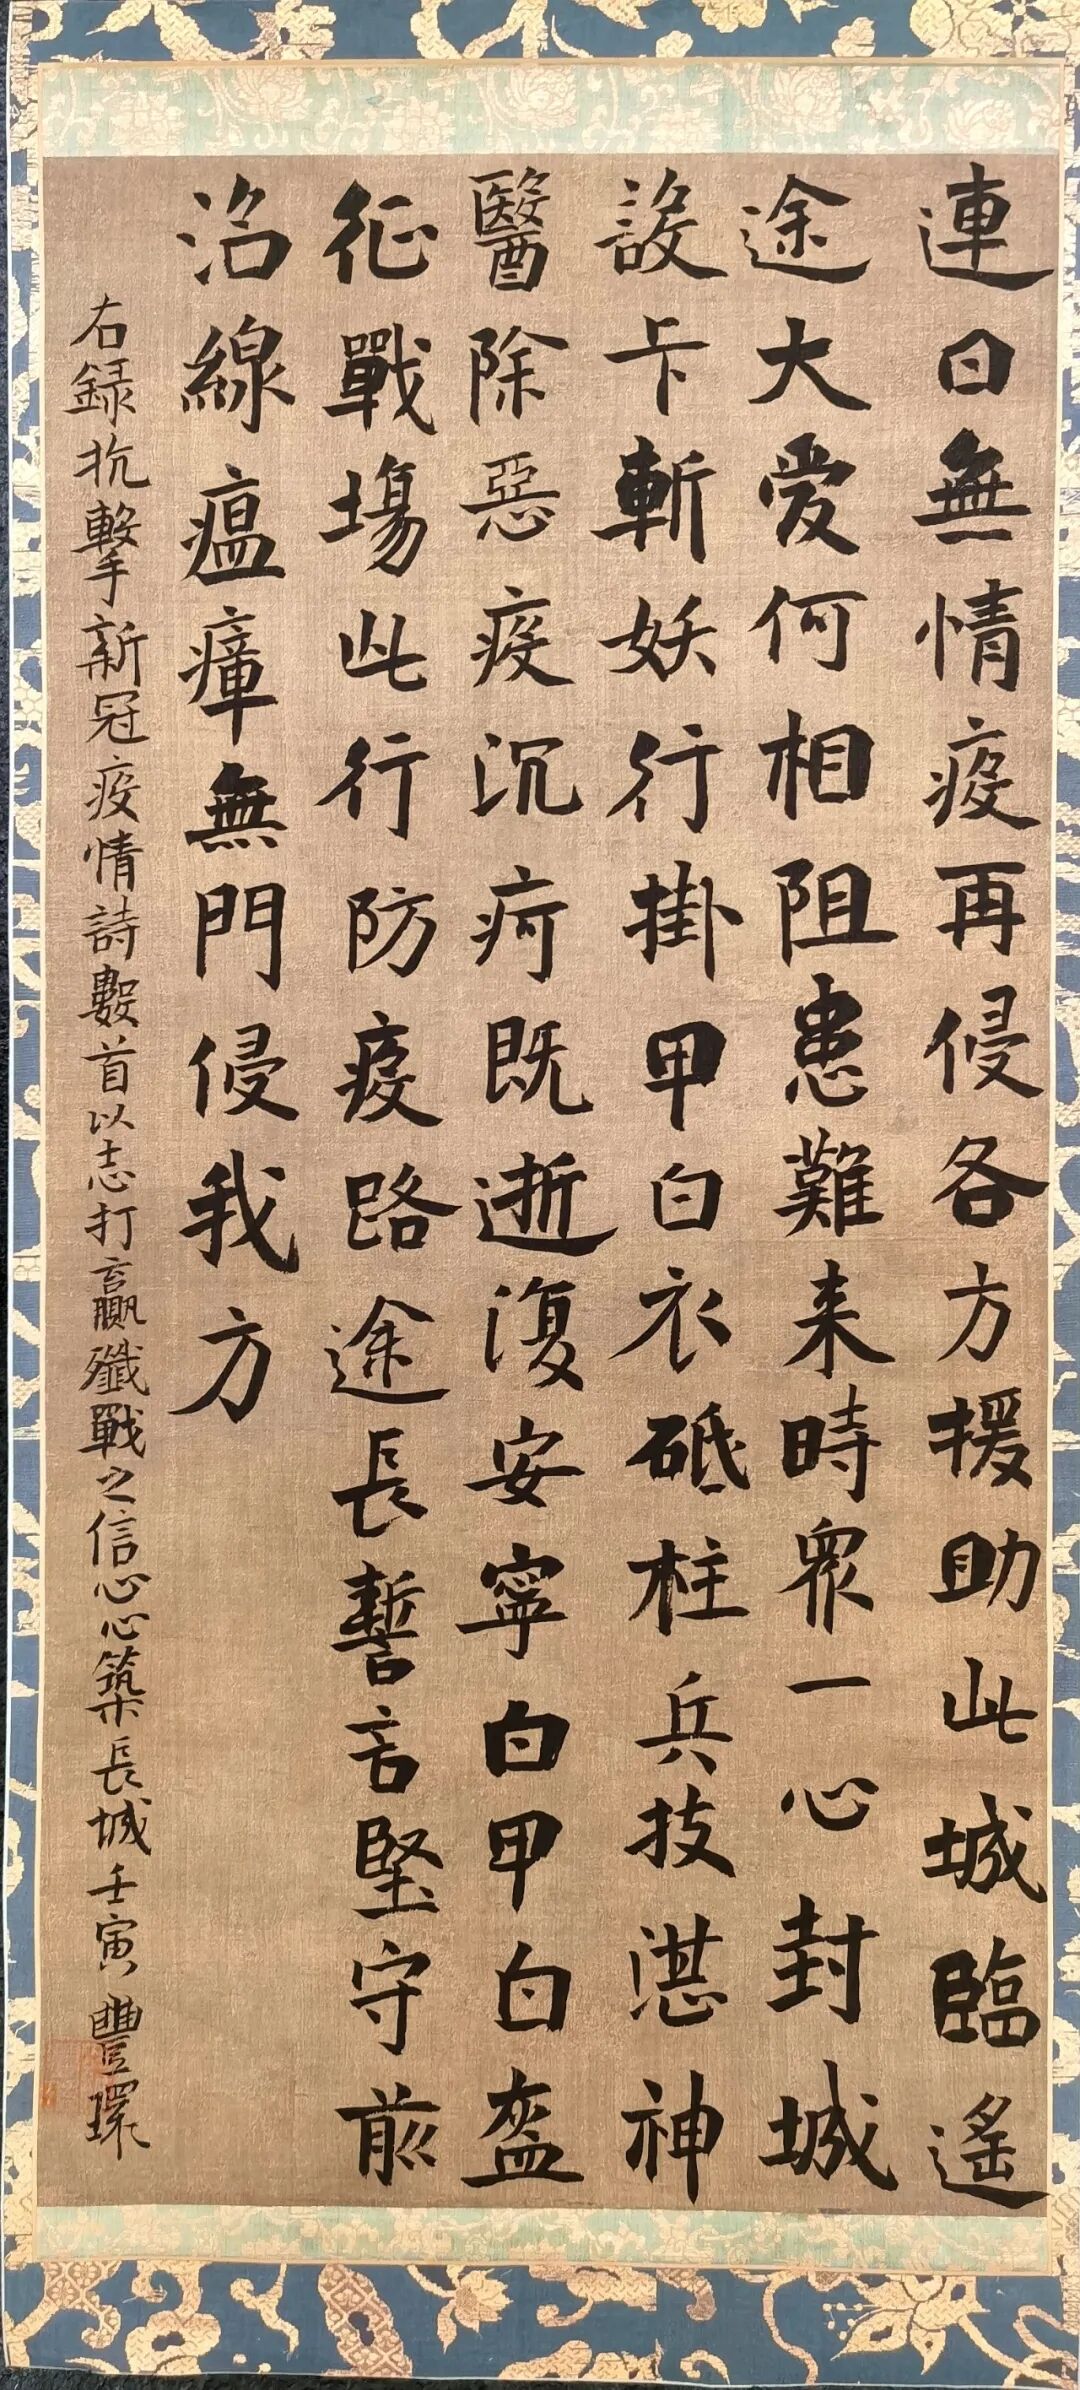 連日無情疫再侵各方援助此城臨遙
途大愛何相阻患難来時眾一心封城
設卡斬妖行掛甲白衣砥柱兵技湛神
醫除惡疫沉疴既逝復安寧白甲白盔
征戰場此行防疫路途長誓言堅守前
沿線瘟瘴無門侵我方
右録抗擊新冠疫情詩數首以志打贏殲戰之信心心築長城壬寅豐環